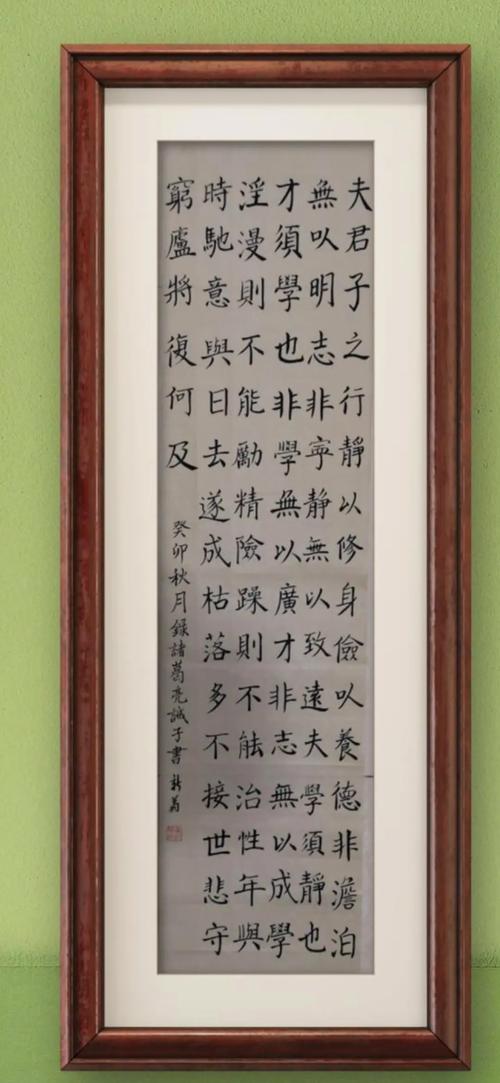 夫君子之行靜以修身儉以養德非澹泊
無以明志非寧静無以致遠夫學須靜也
才須學也非學無以廣才非志無以成學
淫漫則不能勵精險躁則不能治性年與
時馳意與日去遂成枯落多不接世悲守
窮廬將復何及
癸卯秋月錄諸葛亮誡子書